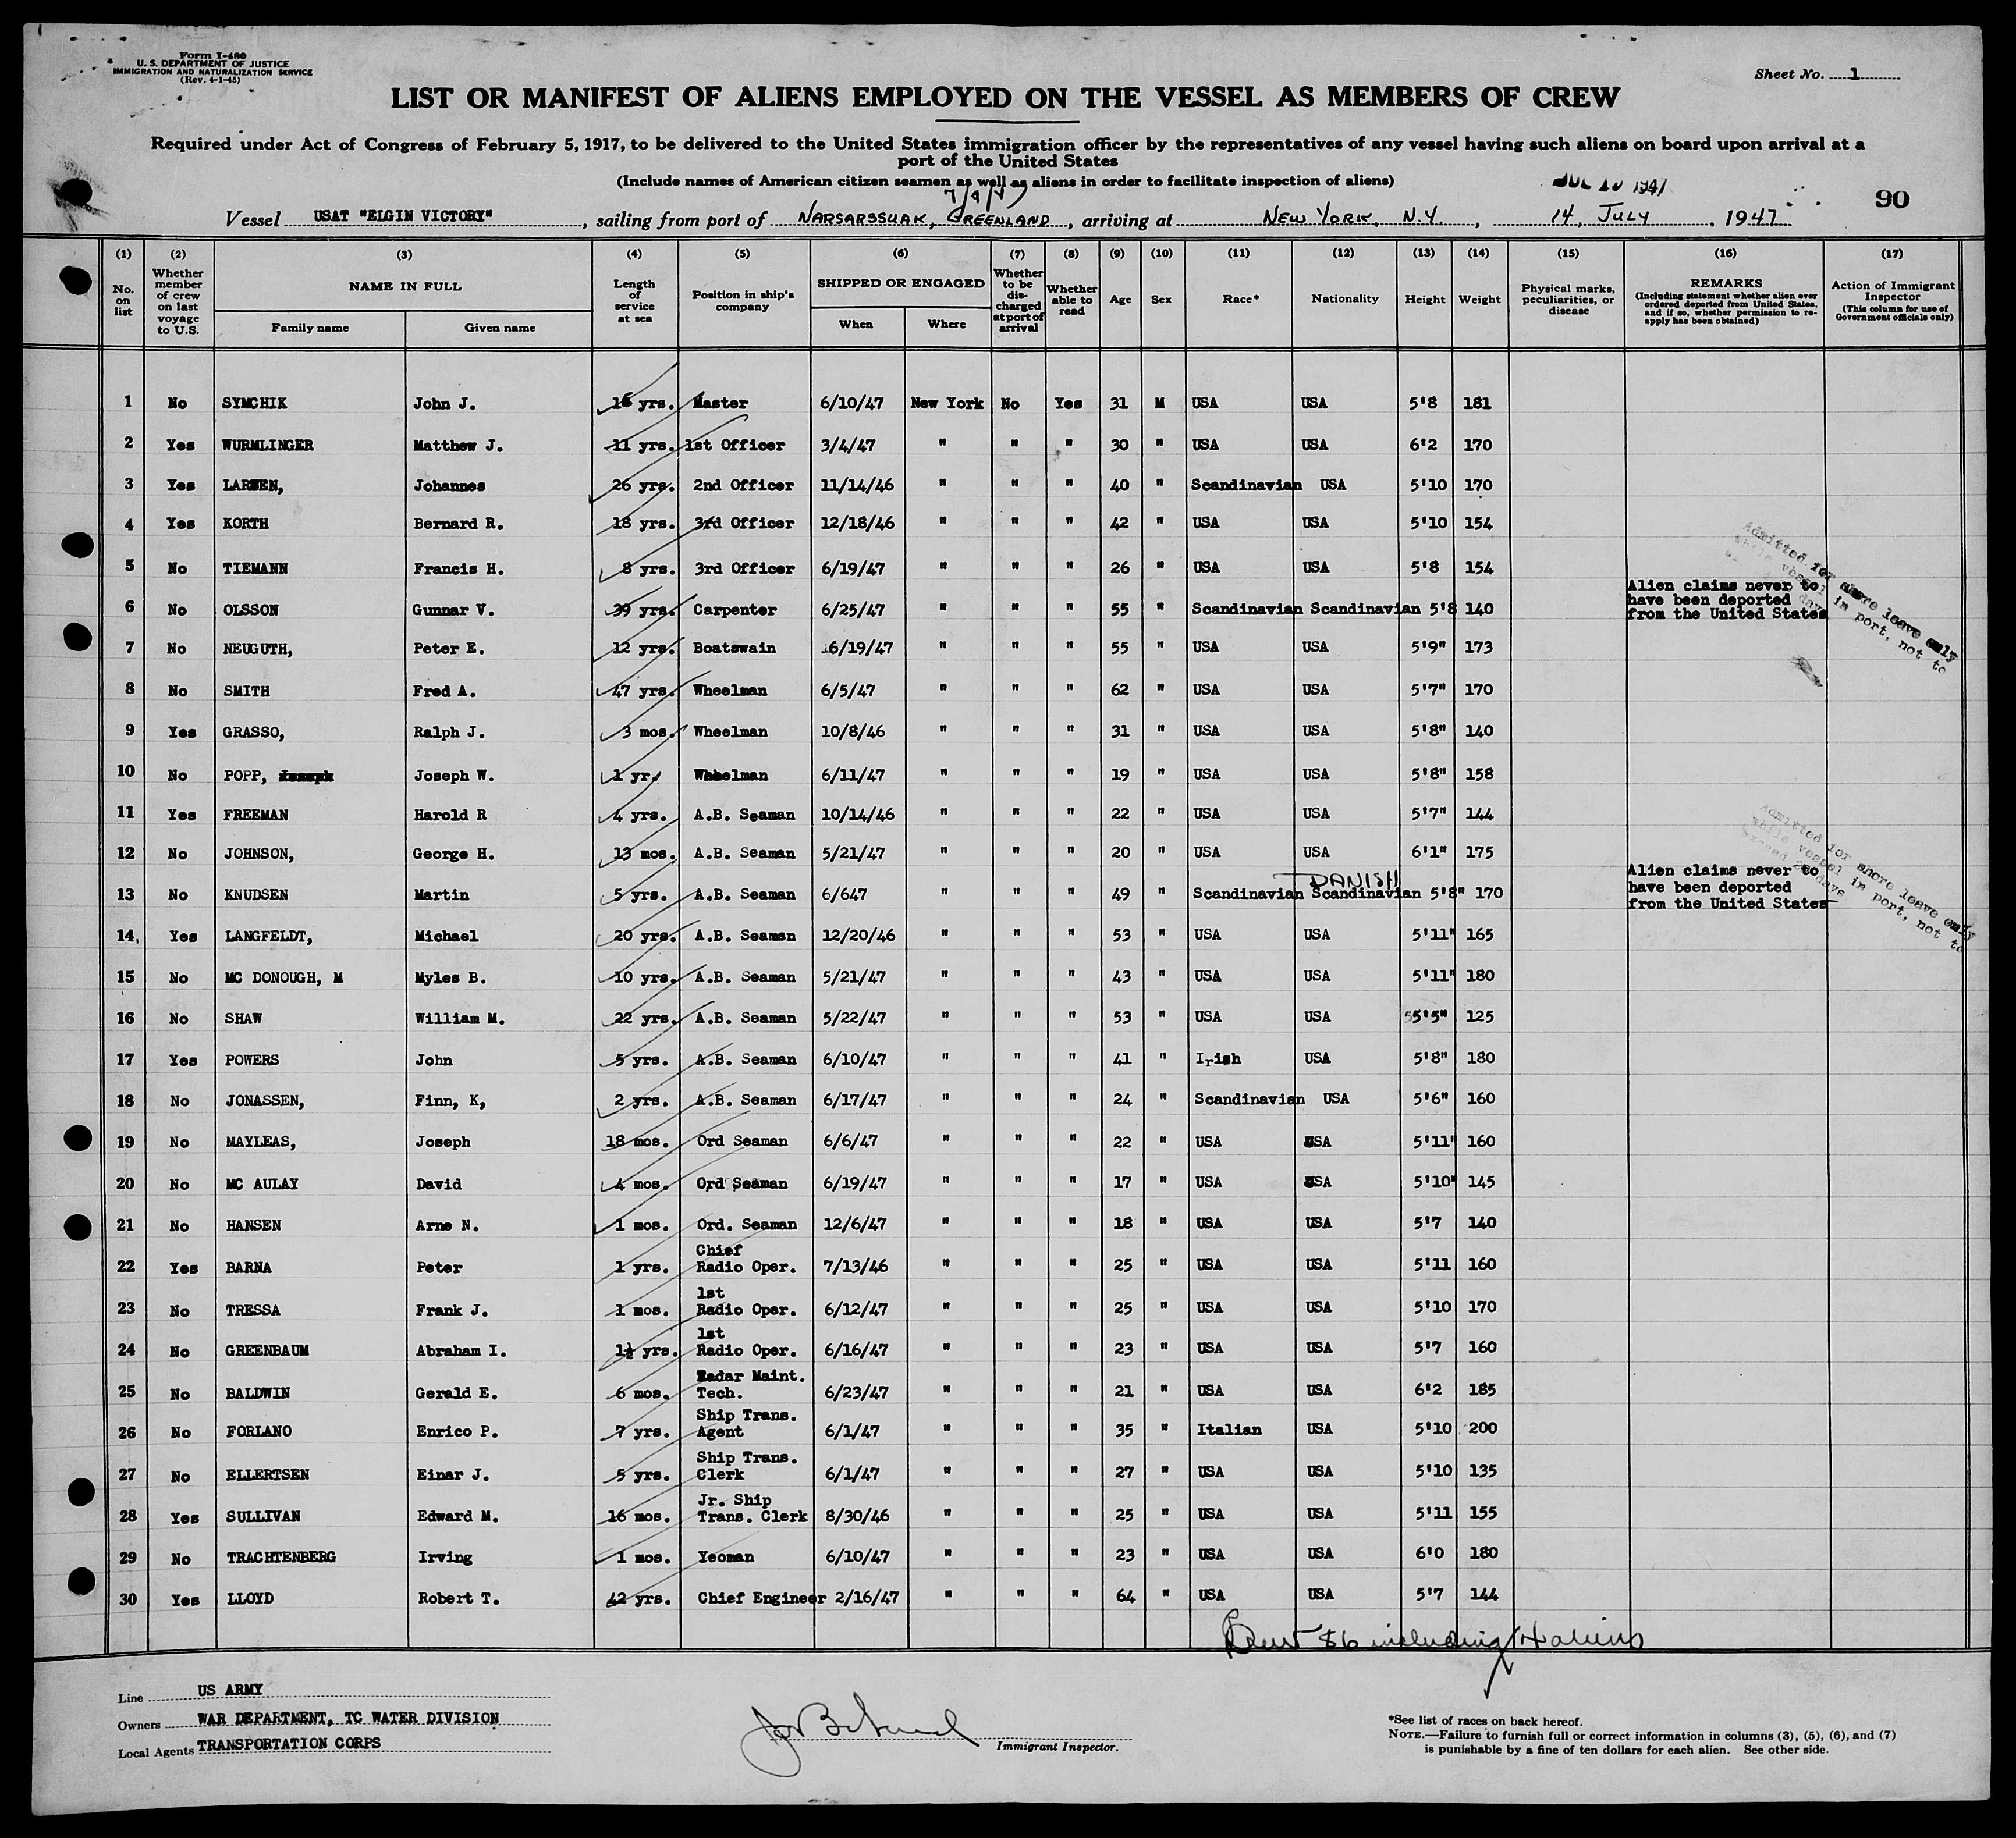 Form I-480
U. S. DEPARTMENT OF JUSTICE
IMMIGRATION AND NATURALIZATION SERVICE
(Rev. 4-1-45)
Sheet No. 1
LIST OR MANIFEST OF ALIENS EMPLOYED ON THE VESSEL AS MEMBERS OF CREW
Required under Act of Congress of February 5, 1917, to be delivered to the United States immigration officer by the representatives of any vessel having such aliens on board upon arrival at a
port of the United States
(Include names of American citizen seamen as well as aliens in order to facilitate inspection of aliens)
90
Vessel USAT "ELGIN VICTORY", sailing from port of NARSARSSUAK, GREENLAND, arriving at NEW YORK, N.Y., 14, JULY, 1947
(1) (2) (3) (4) (5) (6) (7) (8) (9) (10) (11) (12) (13) (14) (15) (16) (17)
No. on list | Whether member of crew on last voyage to U.S. | NAME IN FULL | Family name | Given name | Length of service at sea | Position in ship's company | SHIPPED OR ENGAGED | When | Where | Whether to be discharged at port of arrival | Whether able to read | Age | Sex | Race* | Nationality | Height | Weight | Physical marks, peculiarities, or disease | REMARKS (Including statement whether alien ever ordered deported from United States, and if so, whether permission to re-apply has been obtained) | Action of Immigrant Inspector (This column for use of Government officials only)
1 No SYMCHIK John J. yrs. Master 6/10/47 New York No Yes 31 M USA USA 5'8 181
2 Yes WURMLINGER Matthew J. 11 yrs. 1st Officer 3/4/47 " " " 30 " USA USA 6'2 170
3 Yes LARSEN, Johannes 26 yrs. 2nd Officer 11/14/46 " " " 40 " Scandinavian USA 5'10 170
4 Yes KORTH Bernard R. 18 yrs. 3rd Officer 12/18/46 " " " 42 " USA USA 5'10 154
5 No TIEMANN Francis H. 8 yrs. 3rd Officer 6/19/47 " " " 26 " USA USA 5'8 154
6 No OLSSON Gunnar V. 39 yrs. Carpenter 6/25/47 " " " 55 " Scandinavian Scandinavian 5'8 140 Alien claims never to have been deported from the United States
Admitted for shore leave only
while vessel in port, not to
7 No NEUGUTH, Peter E. 12 yrs. Boatswain 6/19/47 " " " 55 " USA USA 5'9" 173
8 No SMITH Fred A. 47 yrs. Wheelman 6/5/47 " " " 62 " USA USA 5'7" 170
9 Yes GRASSO, Ralph J. 3 mos. Wheelman 10/8/46 " " " 31 " USA USA 5'8" 140
10 No POPP, Joseph W. 1 yr. Wheelman 6/11/47 " " " 19 " USA USA 5'8" 158
11 Yes FREEMAN Harold R 4 yrs. A.B. Seaman 10/14/46 " " " 22 " USA USA 5'7" 144
12 No JOHNSON, George H. 13 mos. A.B. Seaman 5/21/47 " " " 20 " USA USA 6'1" 175
DANISH
13 No KNUDSEN Martin 5 yrs. A.B. Seaman 6/647 " " " 49 " Scandinavian Scandinavian 5'8" 170 Alien claims never to have been deported from the United States
Admitted for shore leave only
while vessel in port, not to
exceed 29 days
14. Yes LANGFELDT, Michael 20 yrs. A.B. Seaman 12/20/46 " " " 53 " USA USA 5'11" 165
15 No MC DONOUGH, M Myles B. 10 yrs. A.B. Seaman 5/21/47 " " " 43 " USA USA 5'11" 180
16 No SHAW William M. 22 yrs. A.B. Seaman 5/22/47 " " " 53 " USA USA 5'5" 125
17 Yes POWERS John 5 yrs. A.B. Seaman 6/10/47 " " " 41 " Irish USA 5'8" 180
18 No JONASSEN, Finn, K, 2 yrs. A.B. Seaman 6/17/47 " " " 24 " Scandinavian USA 5'6" 160
19 No MAYLEAS, Joseph 18 mos. Ord Seaman 6/6/47 " " " 22 " USA USA 5'11" 160
20 No MC AULAY David 4 mos. Ord Seaman 6/19/47 " " " 17 " USA USA 5'10" 145
21 No HANSEN Arne N. 1 mos. Ord. Seaman 12/6/47 " " " 18 " USA USA 5'7 140
22 Yes BARNA Peter 1 yrs. Chief Radio Oper. 7/13/46 " " " 25 " USA USA 5'11 160
23 No TRESSA Frank J. 1 mos. 1st Radio Oper. 6/12/47 " " " 25 " USA USA 5'10 170
24 No GREENBAUM Abraham I. 1½ yrs. 1st Radio Oper. 6/16/47 " " " 23 " USA USA 5'7 160
25 No BALDWIN Gerald E. 6 mos. Radar Maint. Tech. 6/23/47 " " " 21 " USA USA 6'2 185
26 No FORLANO Enrico P. 7 yrs. Ship Trans. Agent 6/1/47 " " " 35 " Italian USA 5'10 200
27 No ELLERTSEN Einar J. 5 yrs. Ship Trans. Clerk 6/1/47 " " " 27 " USA USA 5'10 135
28 Yes SULLIVAN Edward M. 16 mos. Jr. Ship Trans. Clerk 8/30/46 " " " 25 " USA USA 5'11 155
29 No TRACHTENBERG Irving 1 mos. Yeoman 6/10/47 " " " 23 " USA USA 6'0 180
30 Yes LLOYD Robert T. 42 yrs. Chief Engineer 2/16/47 " " " 64 " USA USA 5'7 144
Crew 56 including 4 aliens
Line US ARMY
Owners WAR DEPARTMENT, TC WATER DIVISION
Local Agents TRANSPORTATION CORPS
Immigrant Inspector.
*See list of races on back hereof.
NOTE.—Failure to furnish full or correct information in columns (3), (5), (6), and (7)
is punishable by a fine of ten dollars for each alien. See other side.